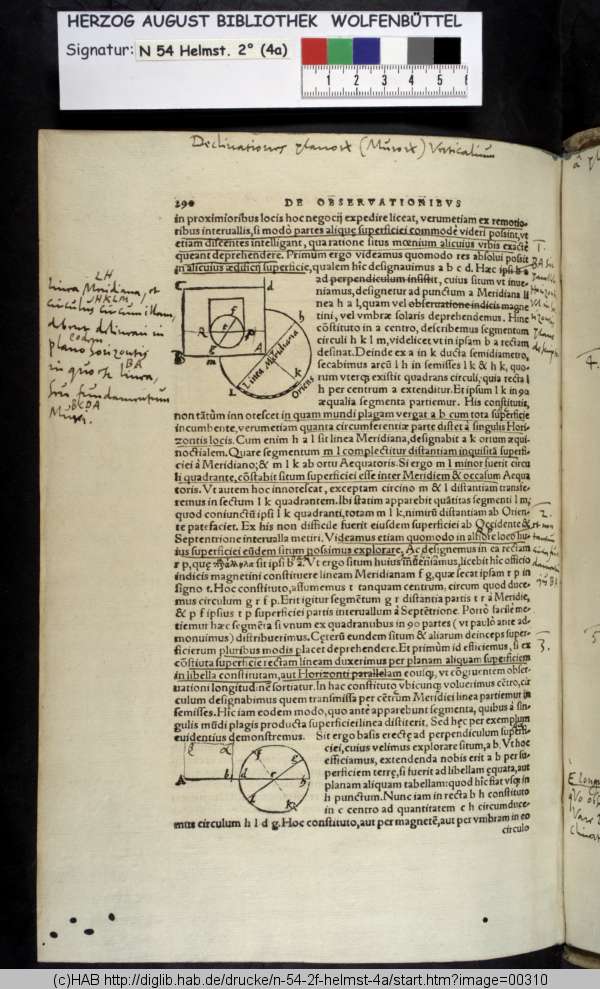 HERZOG AUGUST BIBLIOTHEK WOLFENBÜTTEL
Signatur: N 54 Helmst. 2° (4a)
1 2 3 4 5 6
Declinationes planorū (Murorū) Verticalium
290 DE OBSERVATIONIBVS
in proximioribus locis hoc negocij expedire liceat, verumetiam ex remotio-
ribus interuallis, si modò partes aliquę superficiei commodè videri possint, vt
etiam discentes intelligant, qua ratione situs mœnium alicuius vrbis exactè
queant deprehendere. Primùm ergo videamus quomodo res absolui possit
in alicuius ædificij superficie, qualem hîc designauimus a b c d. Hæc ipsi b a
ad perpendiculum insistit, cuius situm vt inue-
niamus, designetur ad punctum a Meridiana li
nea h a l, quam vel obseruatione indicis magne
tini, vel vmbræ solaris deprehendemus. Hinc
cõstituto in a centro, describemus segmentum
circuli h k l m, videlicet vt in ipsam b a rectam
desinat. Deinde ex a in k ducta semidiametro,
secabimus arcũ l h in semisses l k & h k, quo-
rum vterq; existit quadrans circuli, quia recta l
h per centrum a extenditur. Et ipsum l k in 90
æqualia segmenta partiemur. His constitutis,
non tãtùm innotescet in quam mundi plagam vergat a b cum tota superficie
incumbente, verumetiam quanta circumferentiæ parte distet à singulis Hori-
zontis locis. Cum enim h a l sit linea Meridiana, designabit a k ortum æqui-
noctialem. Quare segmentum m l complectitur distantiam inquisitã superfi-
ciei à Meridiano; & m l k ab ortu Aequatoris. Si ergo m l minor fuerit circu
li quadrante, cõstabit situm superficiei esse inter Meridiem & occasum Aequa
toris. Vt autem hoc innotescat, exceptam circino m & l distantiam transfe-
remus in sectum l k quadrantem. Ibi statim apparebit quãtitas segmenti l m;
quod coniunctũ ipsi l k quadranti, totam m l k, nimirũ distantiam ab Orien-
te patefaciet. Ex his non difficile fuerit eiusdem superficiei ab Occidente &
Septentrione interualla metiri. Videamus etiam quomodo in alsiore loco hu-
ius superficiei eũdem situm possimus explorare. Ac designemus in ea rectam
r p, quę sit ipsi b a. Vt ergo situm huius inueniamus, licebit hîc officio
indicis magnetini constituere lineam Meridianam f g, quæ secat ipsam r p in
signo t. Hoc constituto, assumemus t tanquam centrum, circum quod duce-
mus circulum g r f p. Erit igitur segmẽtum g r distantia partis t r à Meridie,
& p f ipsius t p superficiei partis interuallum à Septẽtrione. Porrò facilè me-
tiemur hæc segmẽta si vnum ex quadranubus in 90 partes (vt paulò ante ad-
monuimus) distribuerimus. Cęterũ eundem situm & aliarum deinceps super-
ficierum pluribus modis placet deprehendere. Et primùm id efficiemus, si ex
cõstituta superficie rectam lineam duxerimus per planam aliquam superficiem
in libella constitutam, aut Horizonti parallelam eousq;, vt cõgruentem obser-
uationi longitudinẽ sortiatur. In hac constituto vbicunq; voluerimus cẽtro, cir
culum designabimus quem transmissa per cẽtrum Meridiei linea partiemur in
semisses. Hîc iam eodem modo, quo antè apparebunt segmenta, quibus à sin-
gulis mũdi plagis producta superficiei linea distiterit. Sed hęc per exemplum
euidentius demonstremus. Sit ergo basis erectę ad perpendiculum superfi-
ciei, cuius velimus explorare situm, a b. Vt hoc
efficiamus, extendenda nobis erit a b per su-
perficiem terrę, si fuerit ad libellam equata, aut
planam aliquam tabellam: quod hîc fiat vsq; in
h punctum. Nunc iam in recta b h constituto
in c centro ad quantitatem c h circumduce-
mus circulum h l d g. Hoc constituto, aut per magnetẽ, aut per vmbram in eo
circulo
LH
linea Meridiana, et
HKLM
circulus circinillam,
debent delineari in
eodem
plano horizontis
BA
in quo est linea,
seu fundamentum
BCDA
Muri.
Linea Meridiana
Oriens
1.
2.
3.
(c)HAB http://diglib.hab.de/drucke/n-54-2f-helmst-4a/start.htm?image=00310